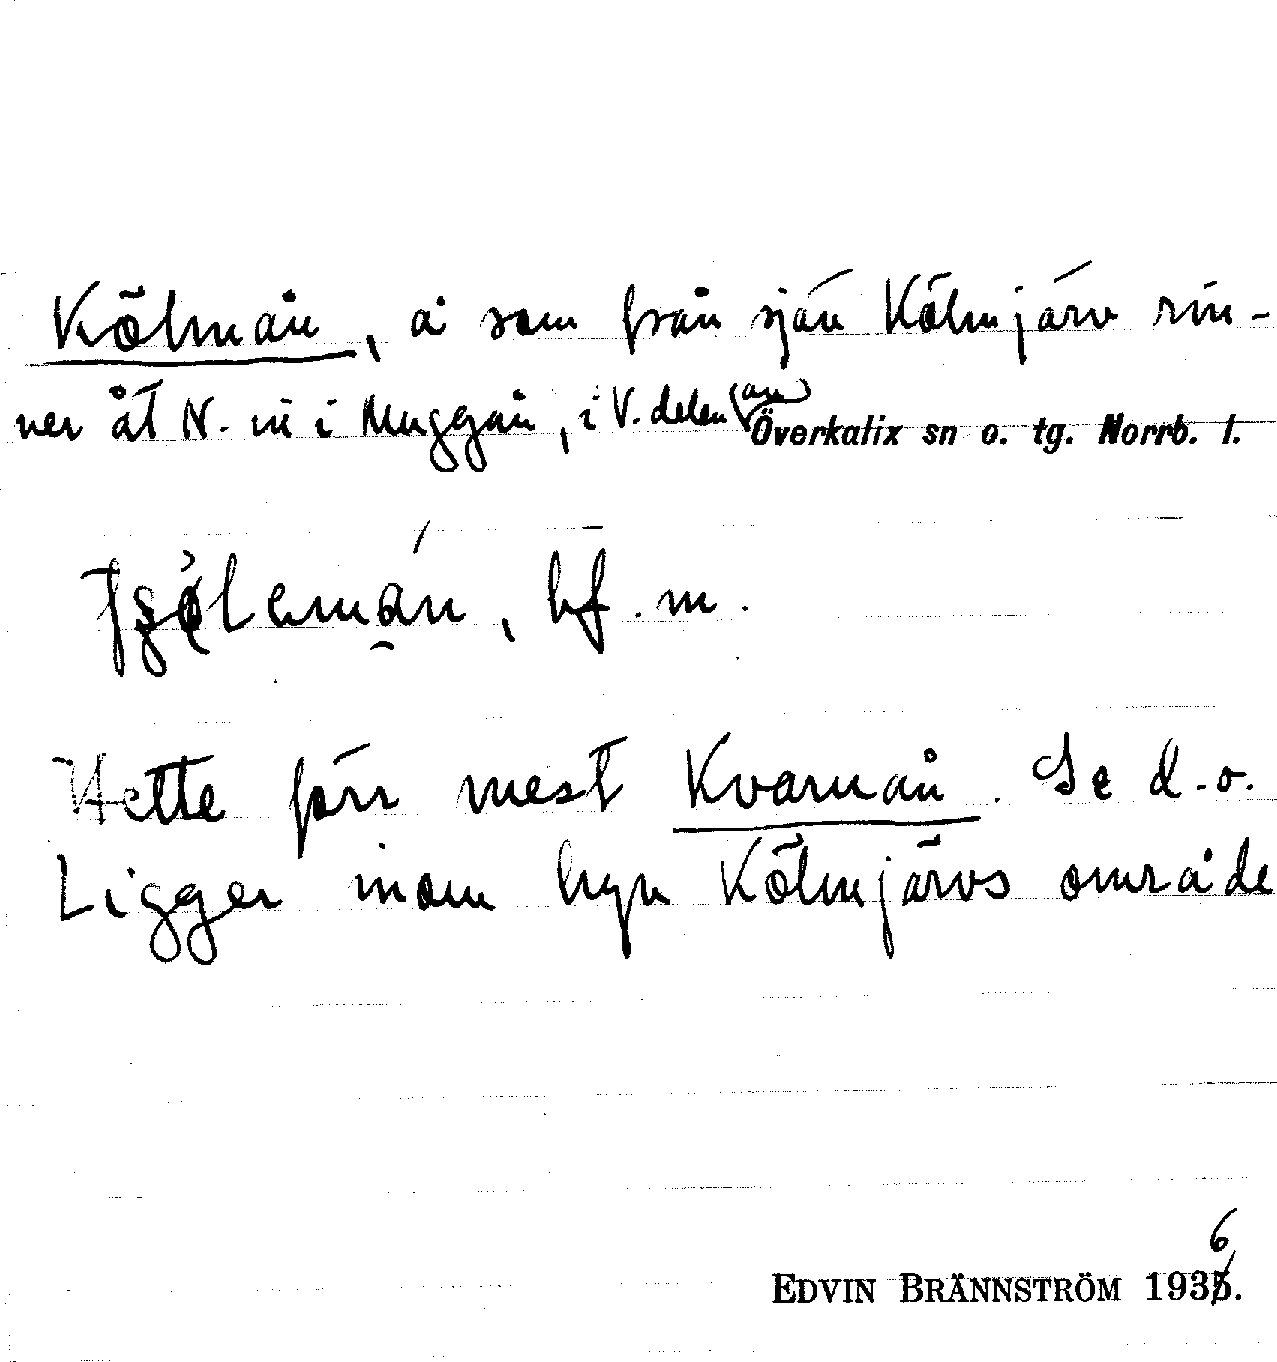 Kölmån, å som från sjön Kölmjärv rin-
ner åt N. in i Muggån, i V. delen (av) Överkalix sn o. tg. Norrb. l.
bf. m.
Hette förr mest Kvarnån. Se d.o.
Ligger inom byn Kölmjärvs område
EDVIN BRÄNNSTRÖM 1936.